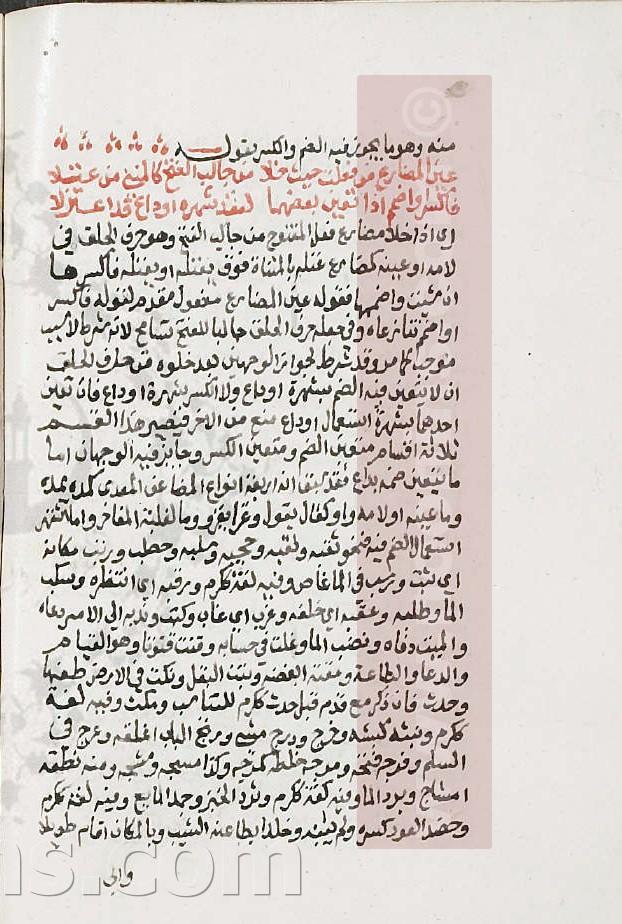 منه وهو ما يجوز فيه الضم والكسر بقوله
عين المضارع من فعلت حيث خلا من جالب الفتح كالمبني من عتلا
فاكسر او اضمم اذا تعيين بعضهما لفقد شهرة او داع قد اعتزلا
اي اذا خلا مضارع فعل المفتوح من جالب الفتح وهو حرف الحلق في
لامه او عينه كمضارع عتله بالمثناة فوق يعتله او يعتله فاكسرها
ان شئت واضمها فقوله عين المضارع مفعول مقدم لقوله فاكسر
او اضمم تنازعاه وفي جعله حرف الحلق جالبا للفتح تسامح لانه شرط لا سبب
موجب كما مر وقد شرط لجواز الوجهين بعد خلوه من حرف الحلق
ان لا يتعين فيه الضم بشهرة او داع ولا الكسر بشهرة او داع فان تعين
احدهما بشهرة استعمال او داع منع من الاخر فيصير هذا القسم
ثلاثة اقسام متعين الضم ومتعين الكسر وجايز فيه الوجهان اما
ما يتعين ضمه بداع فقد سبق انه اربعة انواع المضاعف المعدى كمده يمده
وما عينه او لامه واو كقال يقول وغزا يغزو وما لغلبة المفاخر واما ما اشتهر
استعمال الضم فيه فنحو ثقبه ونقبه وحجبه وسلبه وخطب ورتب مكانه
اي ثبت ورسب في الماء غاص وفيه لغة ككرم ورقبه اي انتظره وسكب
الماء وطلبه وعقبه اي خلفه وعزب اي غاب وكتب وندبه الى الامر دعاه
والميت دفاه ونضب الماء وغلت في حسابه وقنت قنوتا وهو القيام
والدعا والطاعة ومقته ابغضه ونبت البقل ونكت في الارض طعنها
وحدث فان ذكر مع قدم قيل حدث ككرم للتناسب ومكث وفيه لغة
ككرم ونبثه كنبشه وخرج ودرج مشى ورتج الباب اغلقه وعرج في
السلم وفرجه فتحه ومرجه خلطه كمزجه وكذا مشجه ومنه نطفة
امشاج وبرد الماء وفيه لغة ككرم وثرد الخبز وجمد المايع وفيه لغة ككرم
وخضد العود كسره ولم يبنه وخلد ابطا عنه الشيب وبالمكان اقام طويلا
والى
ns.com